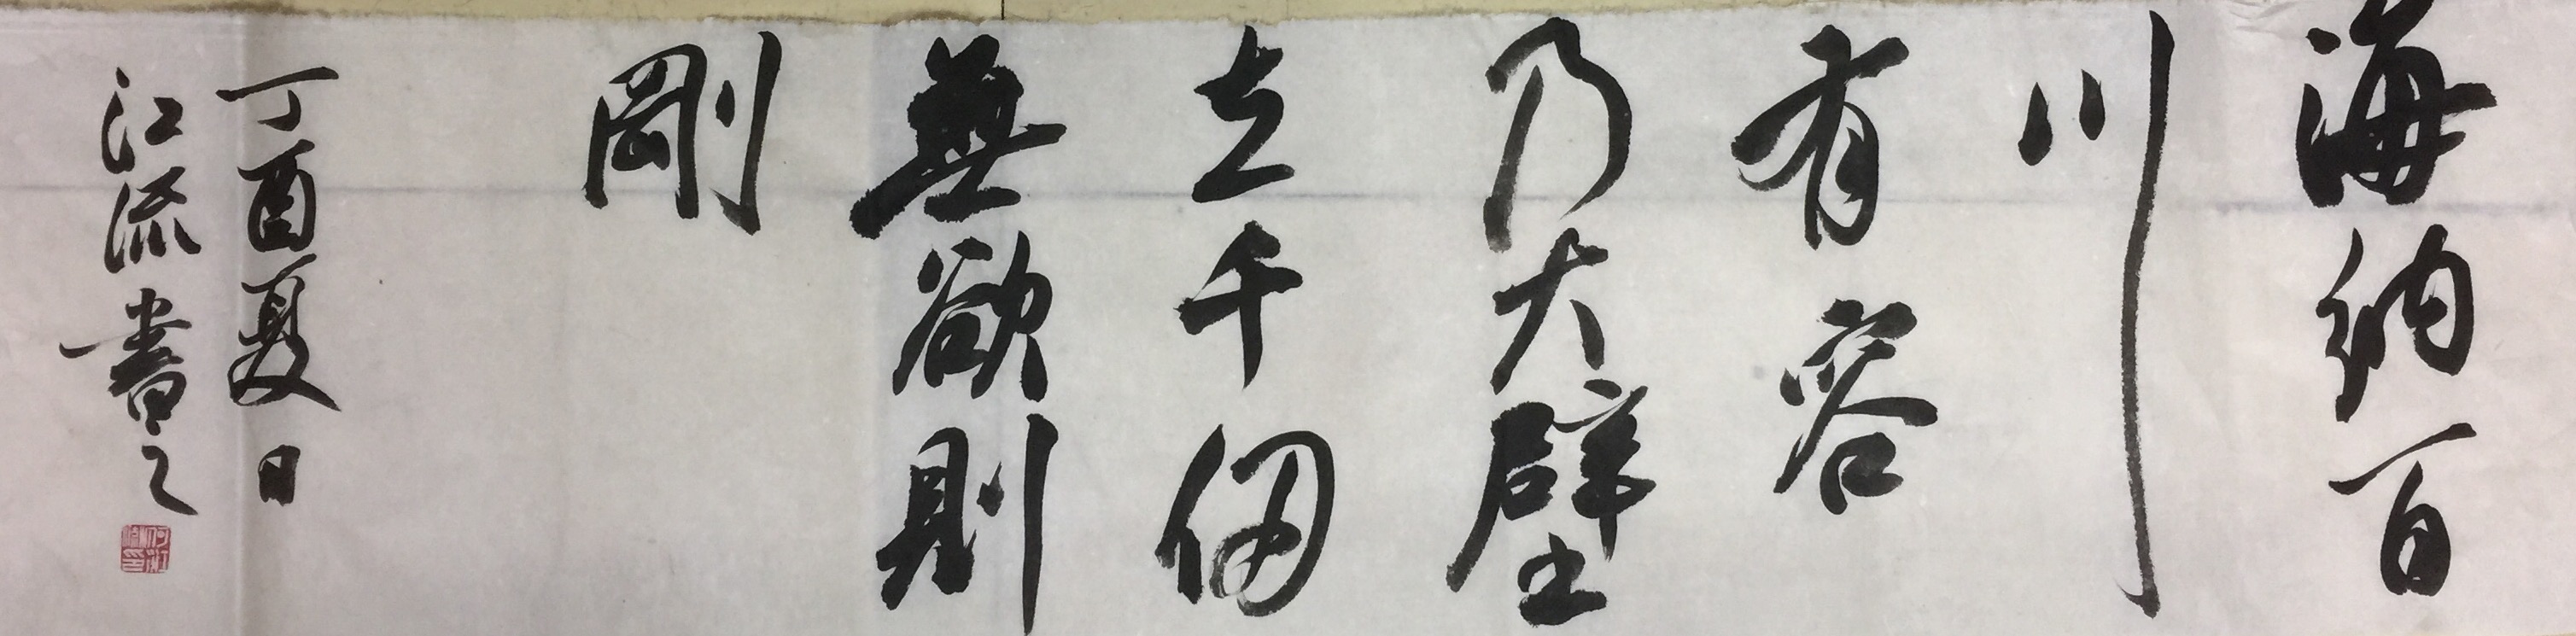 海納百
川
有容
乃大壁
立千仞
無欲則
剛
丁酉夏日
江流書之